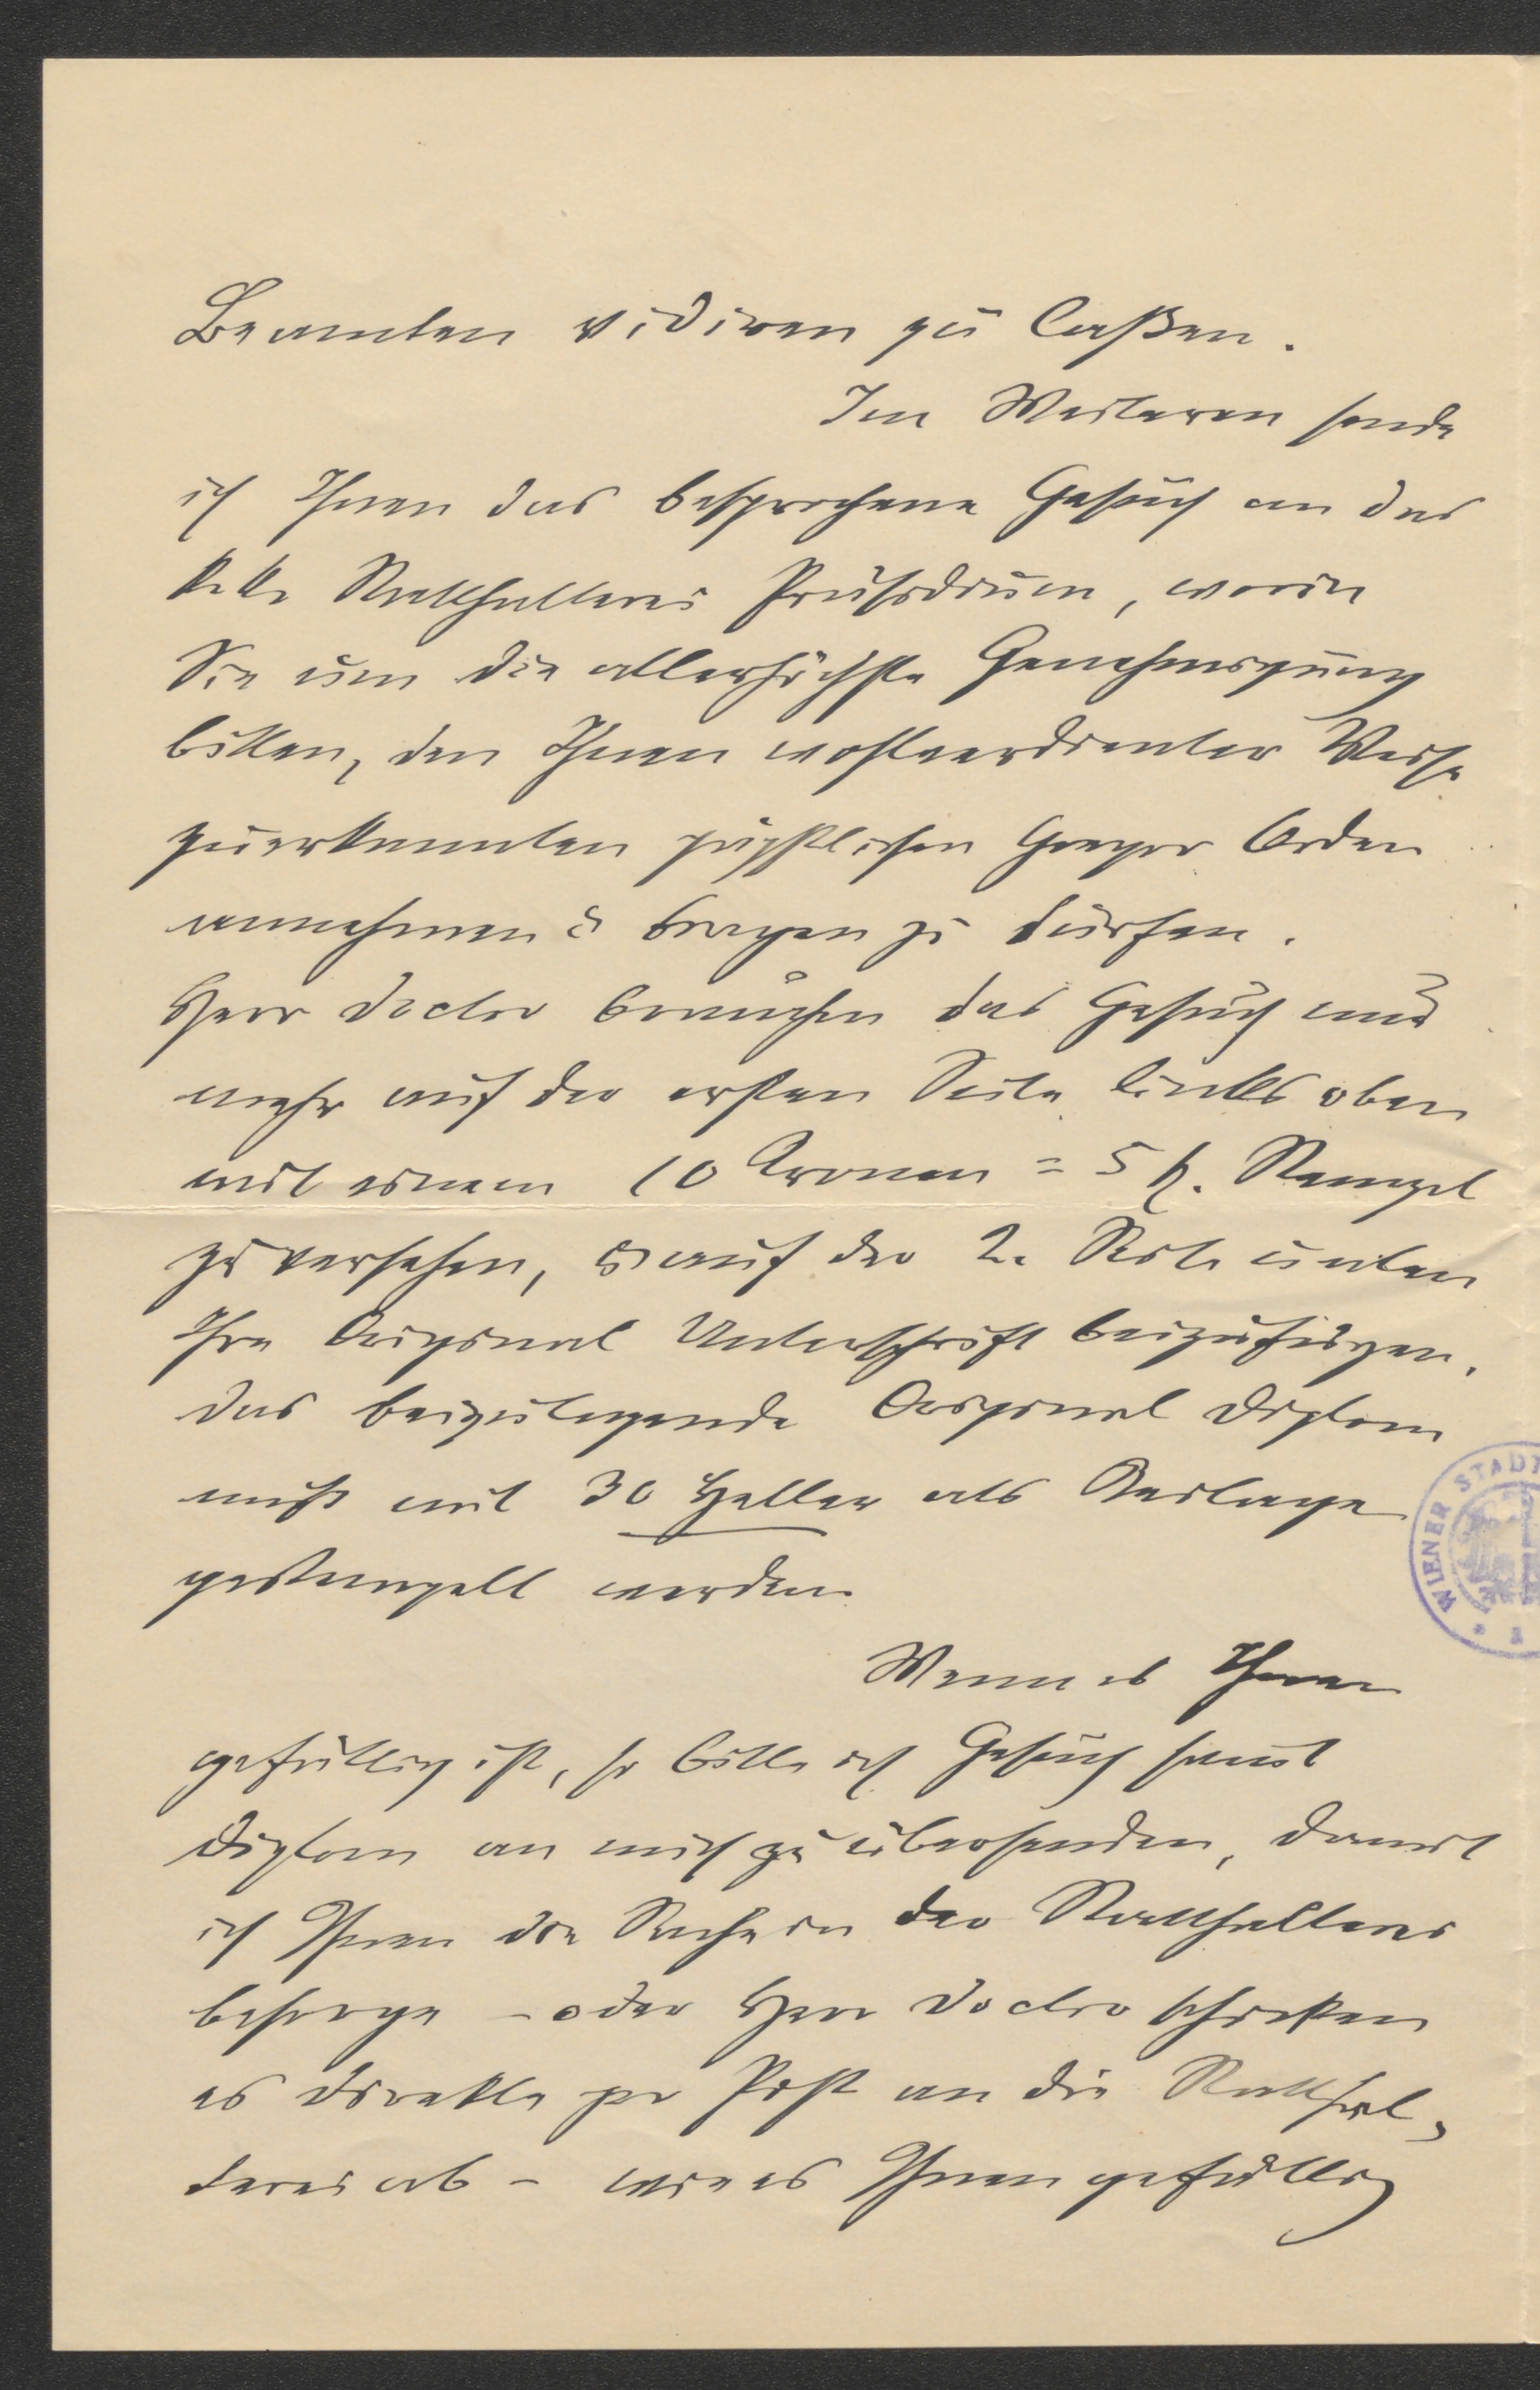 Beamten vidiren zu laßen.
Im Weiteren sende
ich Ihnen das besprochene Gesuch an das
k. k. Statthalterei Präsidium, worin
Sie um die allerhöchste Genehmigung
bitten, den Ihnen wohlverdienter Weise
zuerkannten päpstlichen Gregor Orden
annehmen & tragen zu dürfen.
Herr Doctor brauchen das Gesuch nun
mehr auf der ersten Seite links oben
mit einem 10 Kronen = 5 fl. Stempel
zu versehen, & auf der 2. Seite unten
Ihre Original Unterschrift beizufügen.
Das beizulegende Original Diplom
muß mit 30 Heller als Beilage
gestempelt werden.
Wenn es Ihnen
gefällig ist, so bitte ich Gesuch samt
Diplom an mich zu übersenden, damit
ich Ihnen die Sache in der Statthalterei
besorge – oder Herr Doctor schicken
es direkte per Post an die Statthal-
terei ab – wie es Ihnen gefällig
WIENER STADT